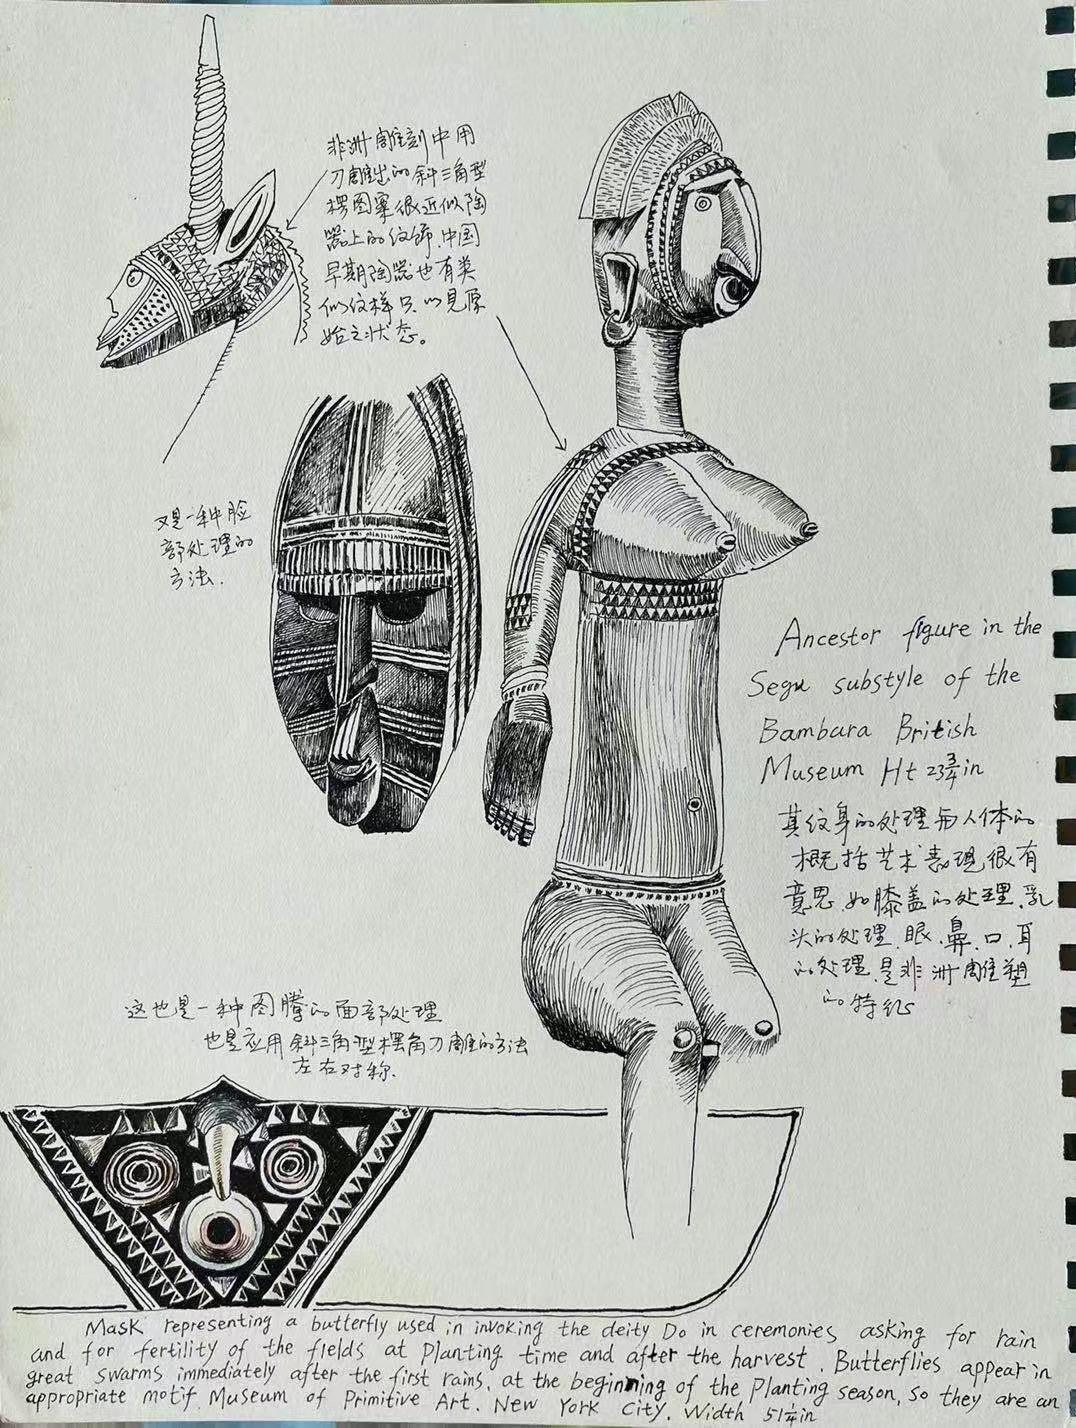 非洲雕刻中用
刀雕出的斜三角型
楞图案很近似陶
器上的纹饰,中国
早期陶器也有类
似纹样只以见原
始之状态。
又是一种脸
部处理的
方法.
Ancestor figure in the
Segu substyle of the
Bambara British
Museum Ht 23¾in
其纹身的处理与人体的
概括艺术表现很有
意思.如膝盖的处理.乳
头的处理.眼.鼻.口.耳
的处理.是非洲雕塑
的特征
这也是一种图腾的面部处理
也是应用斜三角型楞角刀雕的方法
左右对称.
Mask representing a butterfly used in invoking the deity Do in ceremonies asking for rain
and for fertility of the fields at planting time and after the harvest. Butterflies appear in
great swarms immediately after the first rains, at the beginning of the planting season, so they are an
appropriate motif. Museum of Primitive Art. New York City. Width 51¼in